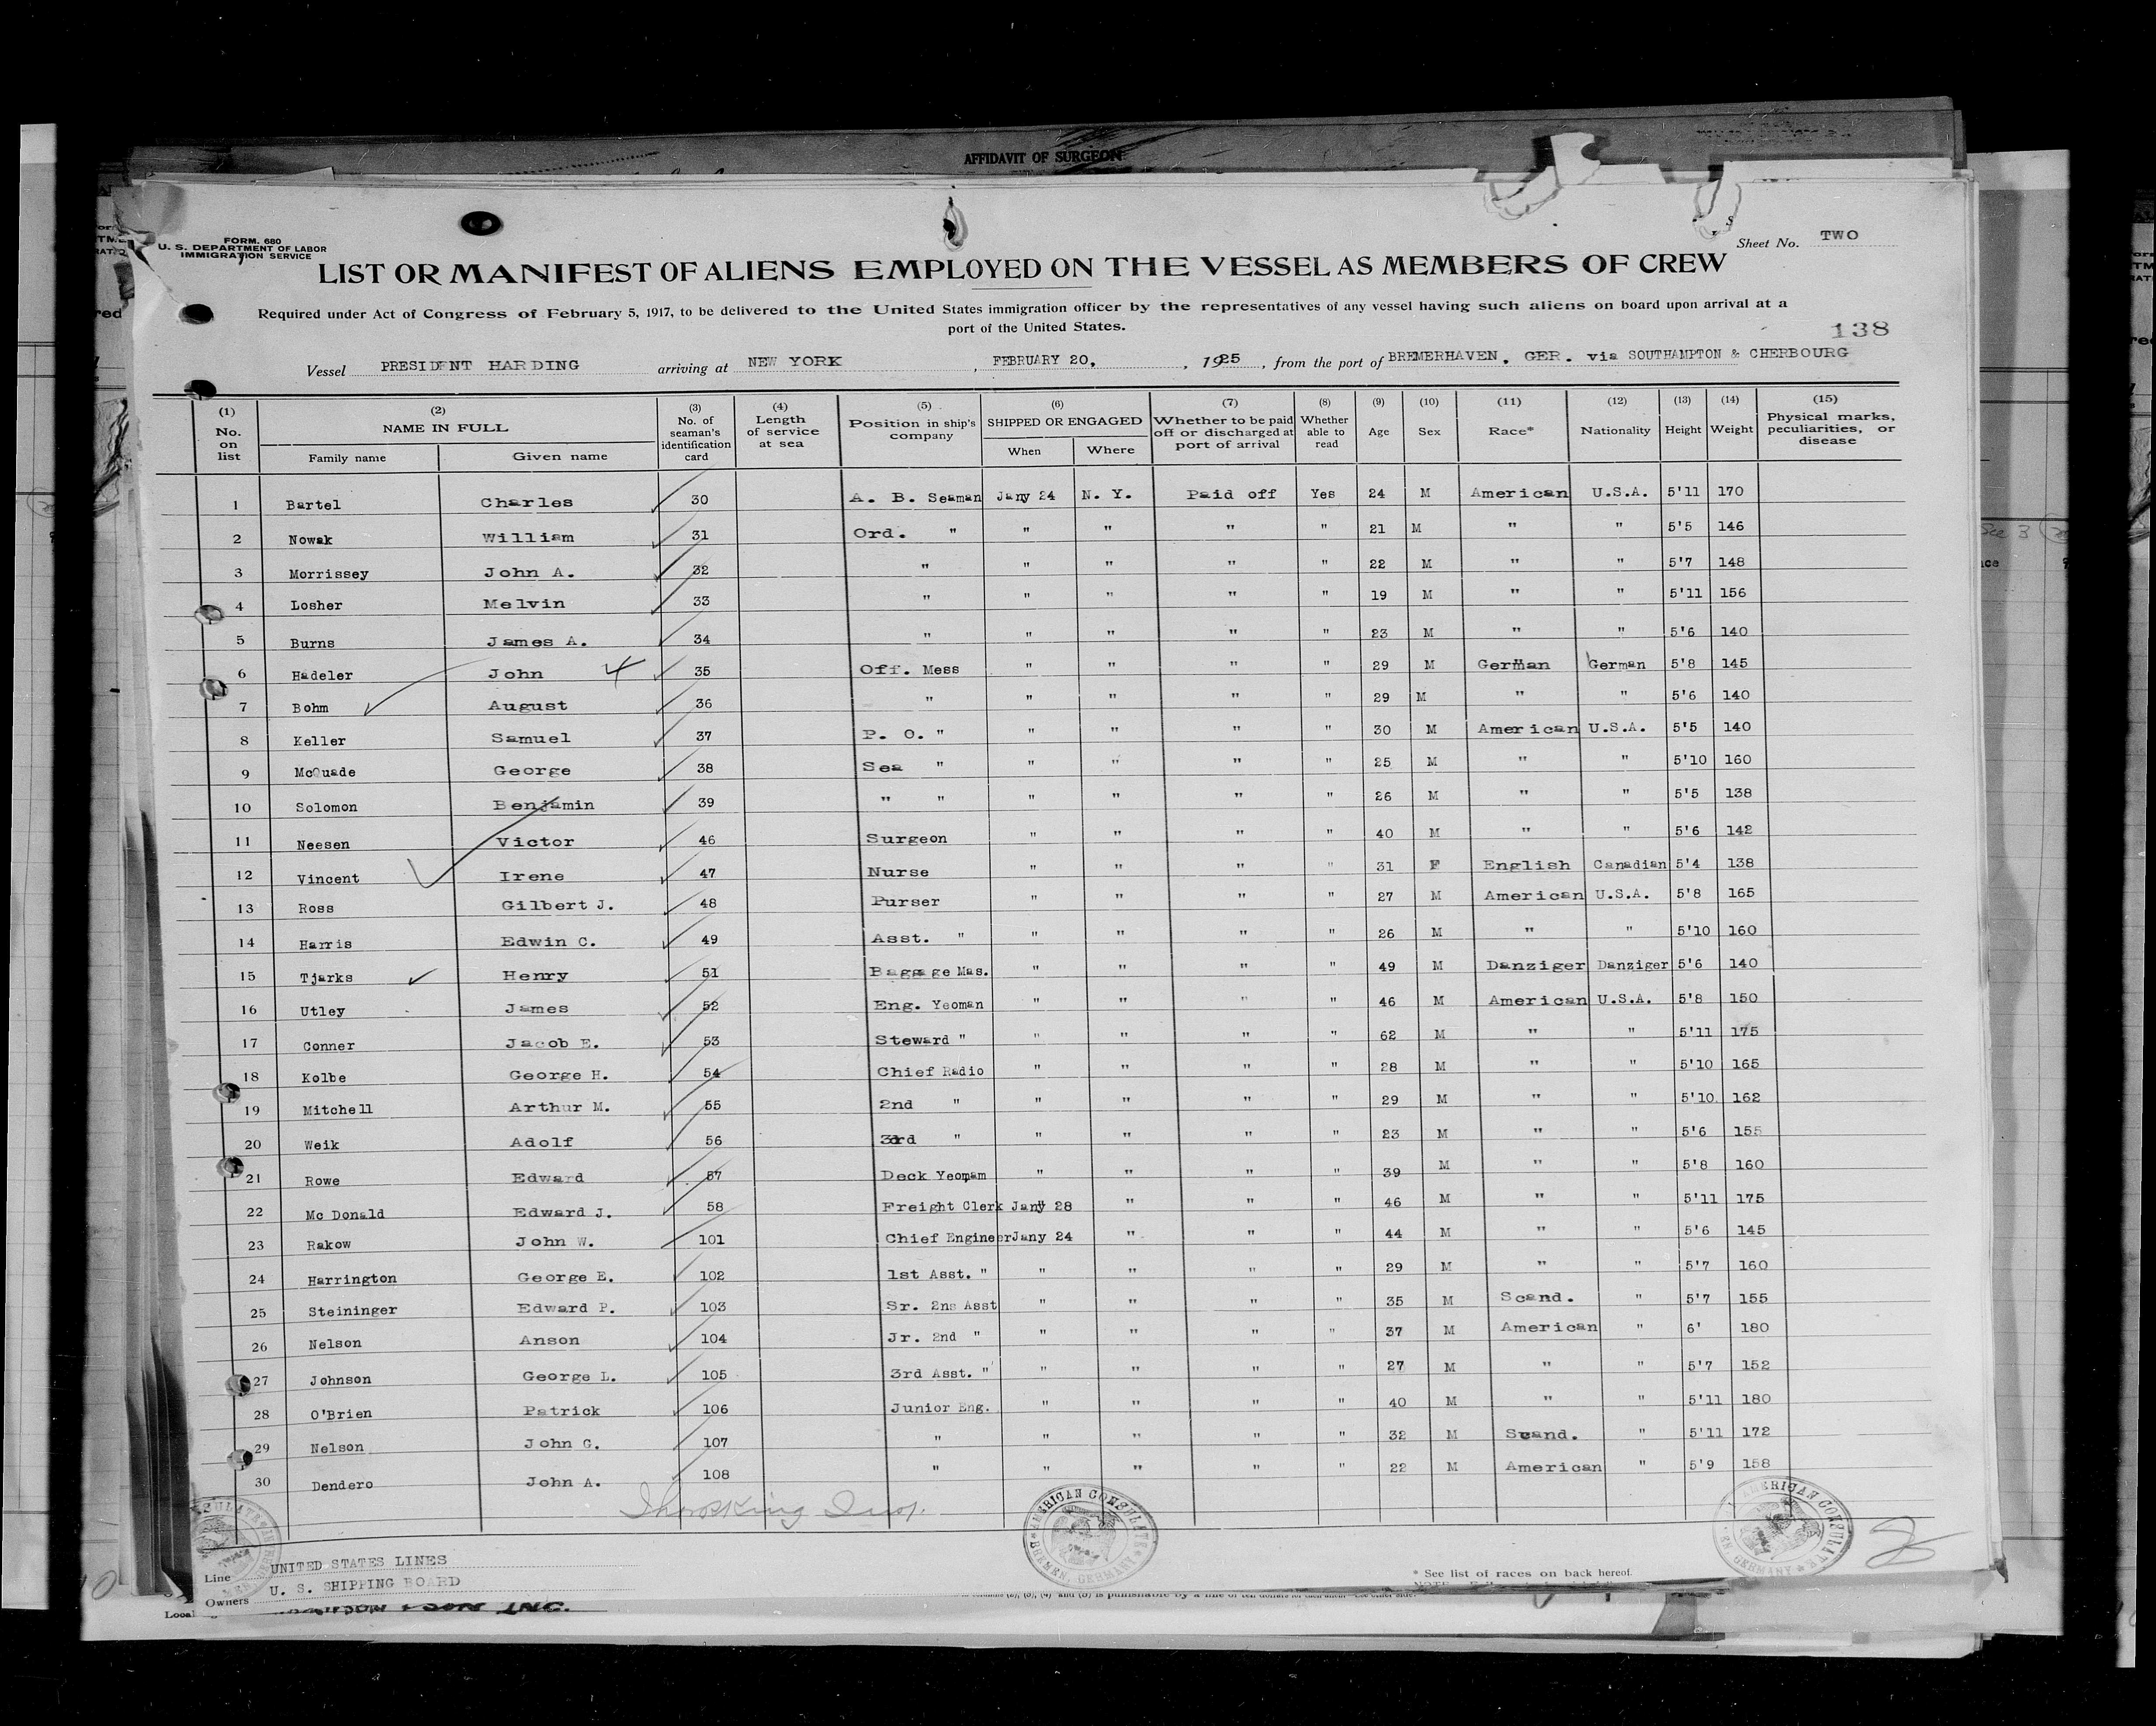 AFFIDAVIT OF SURGEON
FORM. 680
U. S. DEPARTMENT OF LABOR
IMMIGRATION SERVICE
Sheet No. TWO
LIST OR MANIFEST OF ALIENS EMPLOYED ON THE VESSEL AS MEMBERS OF CREW
Required under Act of Congress of February 5, 1917, to be delivered to the United States immigration officer by the representatives of any vessel having such aliens on board upon arrival at a
port of the United States.
138
Vessel PRESIDENT HARDING arriving at NEW YORK , FEBRUARY 20, , 1925 , from the port of BREMERHAVEN, GER. via SOUTHAMPTON & CHERBOURG
(1) No. on list (2) NAME IN FULL Family name Given name (3) No. of seaman's identification card (4) Length of service at sea (5) Position in ship's company (6) SHIPPED OR ENGAGED When Where (7) Whether to be paid off or discharged at port of arrival (8) Whether able to read (9) Age (10) Sex (11) Race* (12) Nationality (13) Height (14) Weight (15) Physical marks, peculiarities, or disease
1 Bartel Charles 30 A. B. Seaman Jany 24 N. Y. Paid off Yes 24 M American U.S.A. 5'11 170
2 Nowak William 31 Ord. " " " " " 21 M " " 5'5 146
3 Morrissey John A. 32 " " " " " 22 M " " 5'7 148
4 Losher Melvin 33 " " " " " 19 M " " 5'11 156
5 Burns James A. 34 " " " " " 23 M " " 5'6 140
6 Hadeler John 4 35 Off. Mess " " " " 29 M German German 5'8 145
7 Bohm August 36 " " " " " 29 M " " 5'6 140
8 Keller Samuel 37 P. O. " " " " " 30 M American U.S.A. 5'5 140
9 McQuade George 38 Sea " " " " " 25 M " " 5'10 160
10 Solomon Benjamin 39 " " " " " " 26 M " " 5'5 138
11 Neesen Victor 46 Surgeon " " " " 40 M " " 5'6 142
12 Vincent Irene 47 Nurse " " " " 31 F English Canadian 5'4 138
13 Ross Gilbert J. 48 Purser " " " " 27 M American U.S.A. 5'8 165
14 Harris Edwin C. 49 Asst. " " " " " 26 M " " 5'10 160
15 Tjarks Henry 51 Baggage Mas. " " " " 49 M Danziger Danziger 5'6 140
16 Utley James 52 Eng. Yeoman " " " " 46 M American U.S.A. 5'8 150
17 Conner Jacob E. 53 Steward " " " " " 62 M " " 5'11 175
18 Kolbe George H. 54 Chief Radio " " " " 28 M " " 5'10 165
19 Mitchell Arthur M. 55 2nd " " " " " 29 M " " 5'10 162
20 Weik Adolf 56 3rd " " " " " 23 M " " 5'6 155
21 Rowe Edward 57 Deck Yeoman " " " " 39 M " " 5'8 160
22 Mc Donald Edward J. 58 Freight Clerk Jany 28 " " " 46 M " " 5'11 175
23 Rakow John W. 101 Chief Engineer Jany 24 " " " 44 M " " 5'6 145
24 Harrington George E. 102 1st Asst. " " " " " 29 M " " 5'7 160
25 Steininger Edward P. 103 Sr. 2ns Asst " " " " 35 M Scand. " 5'7 155
26 Nelson Anson 104 Jr. 2nd " " " " " 37 M American " 6' 180
27 Johnson George L. 105 3rd Asst. " " " " " 27 M " " 5'7 152
28 O'Brien Patrick 106 Junior Eng. " " " " 40 M " " 5'11 180
29 Nelson John G. 107 " " " " " 32 M Scand. " 5'11 172
30 Dendero John A. 108 " " " " " 22 M American " 5'9 158
AMERICAN CONSULATE
BREMEN, GERMANY
AMERICAN CONSULATE
GERMANY
Line UNITED STATES LINES
Owners U. S. SHIPPING BOARD
* See list of races on back hereof.
Local